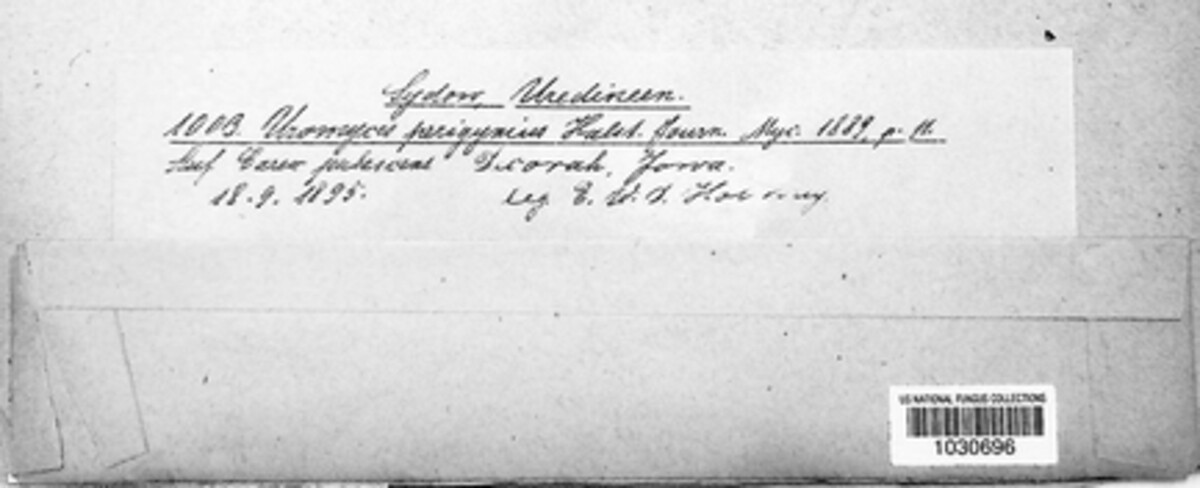 Sydow, Uredineen.
1003. Uromyces perigynius Halst. Journ. Myc. 1889, p. 11.
Auf Carex pubescens Decorah, Iowa.
18.9. 1895. leg. E. W. D. Holway
US NATIONAL FUNGUS COLLECTIONS
1030696